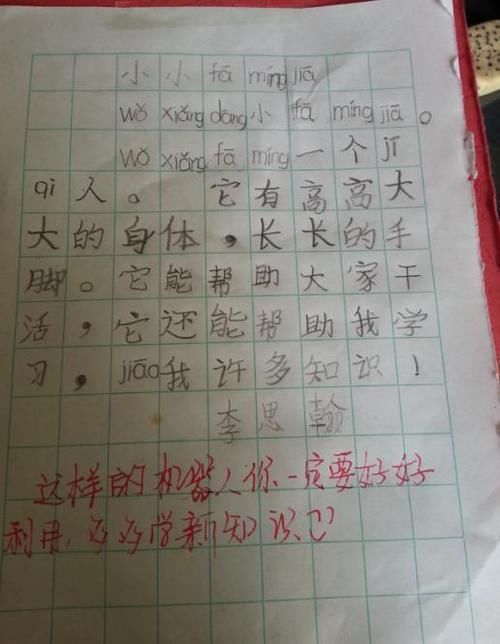 小小fā míng jiā
wǒ xiǎng dāng小fā míng jiā。
wǒ xiǎng fā míng一个jī
qì人。它有高高大
大的身体，长长的手
脚。它能帮助大家干
活，它还能帮助我学
习，jiāo我许多知识！
李思翰
这样的机器人你一定要好好
利用，多多学新知识